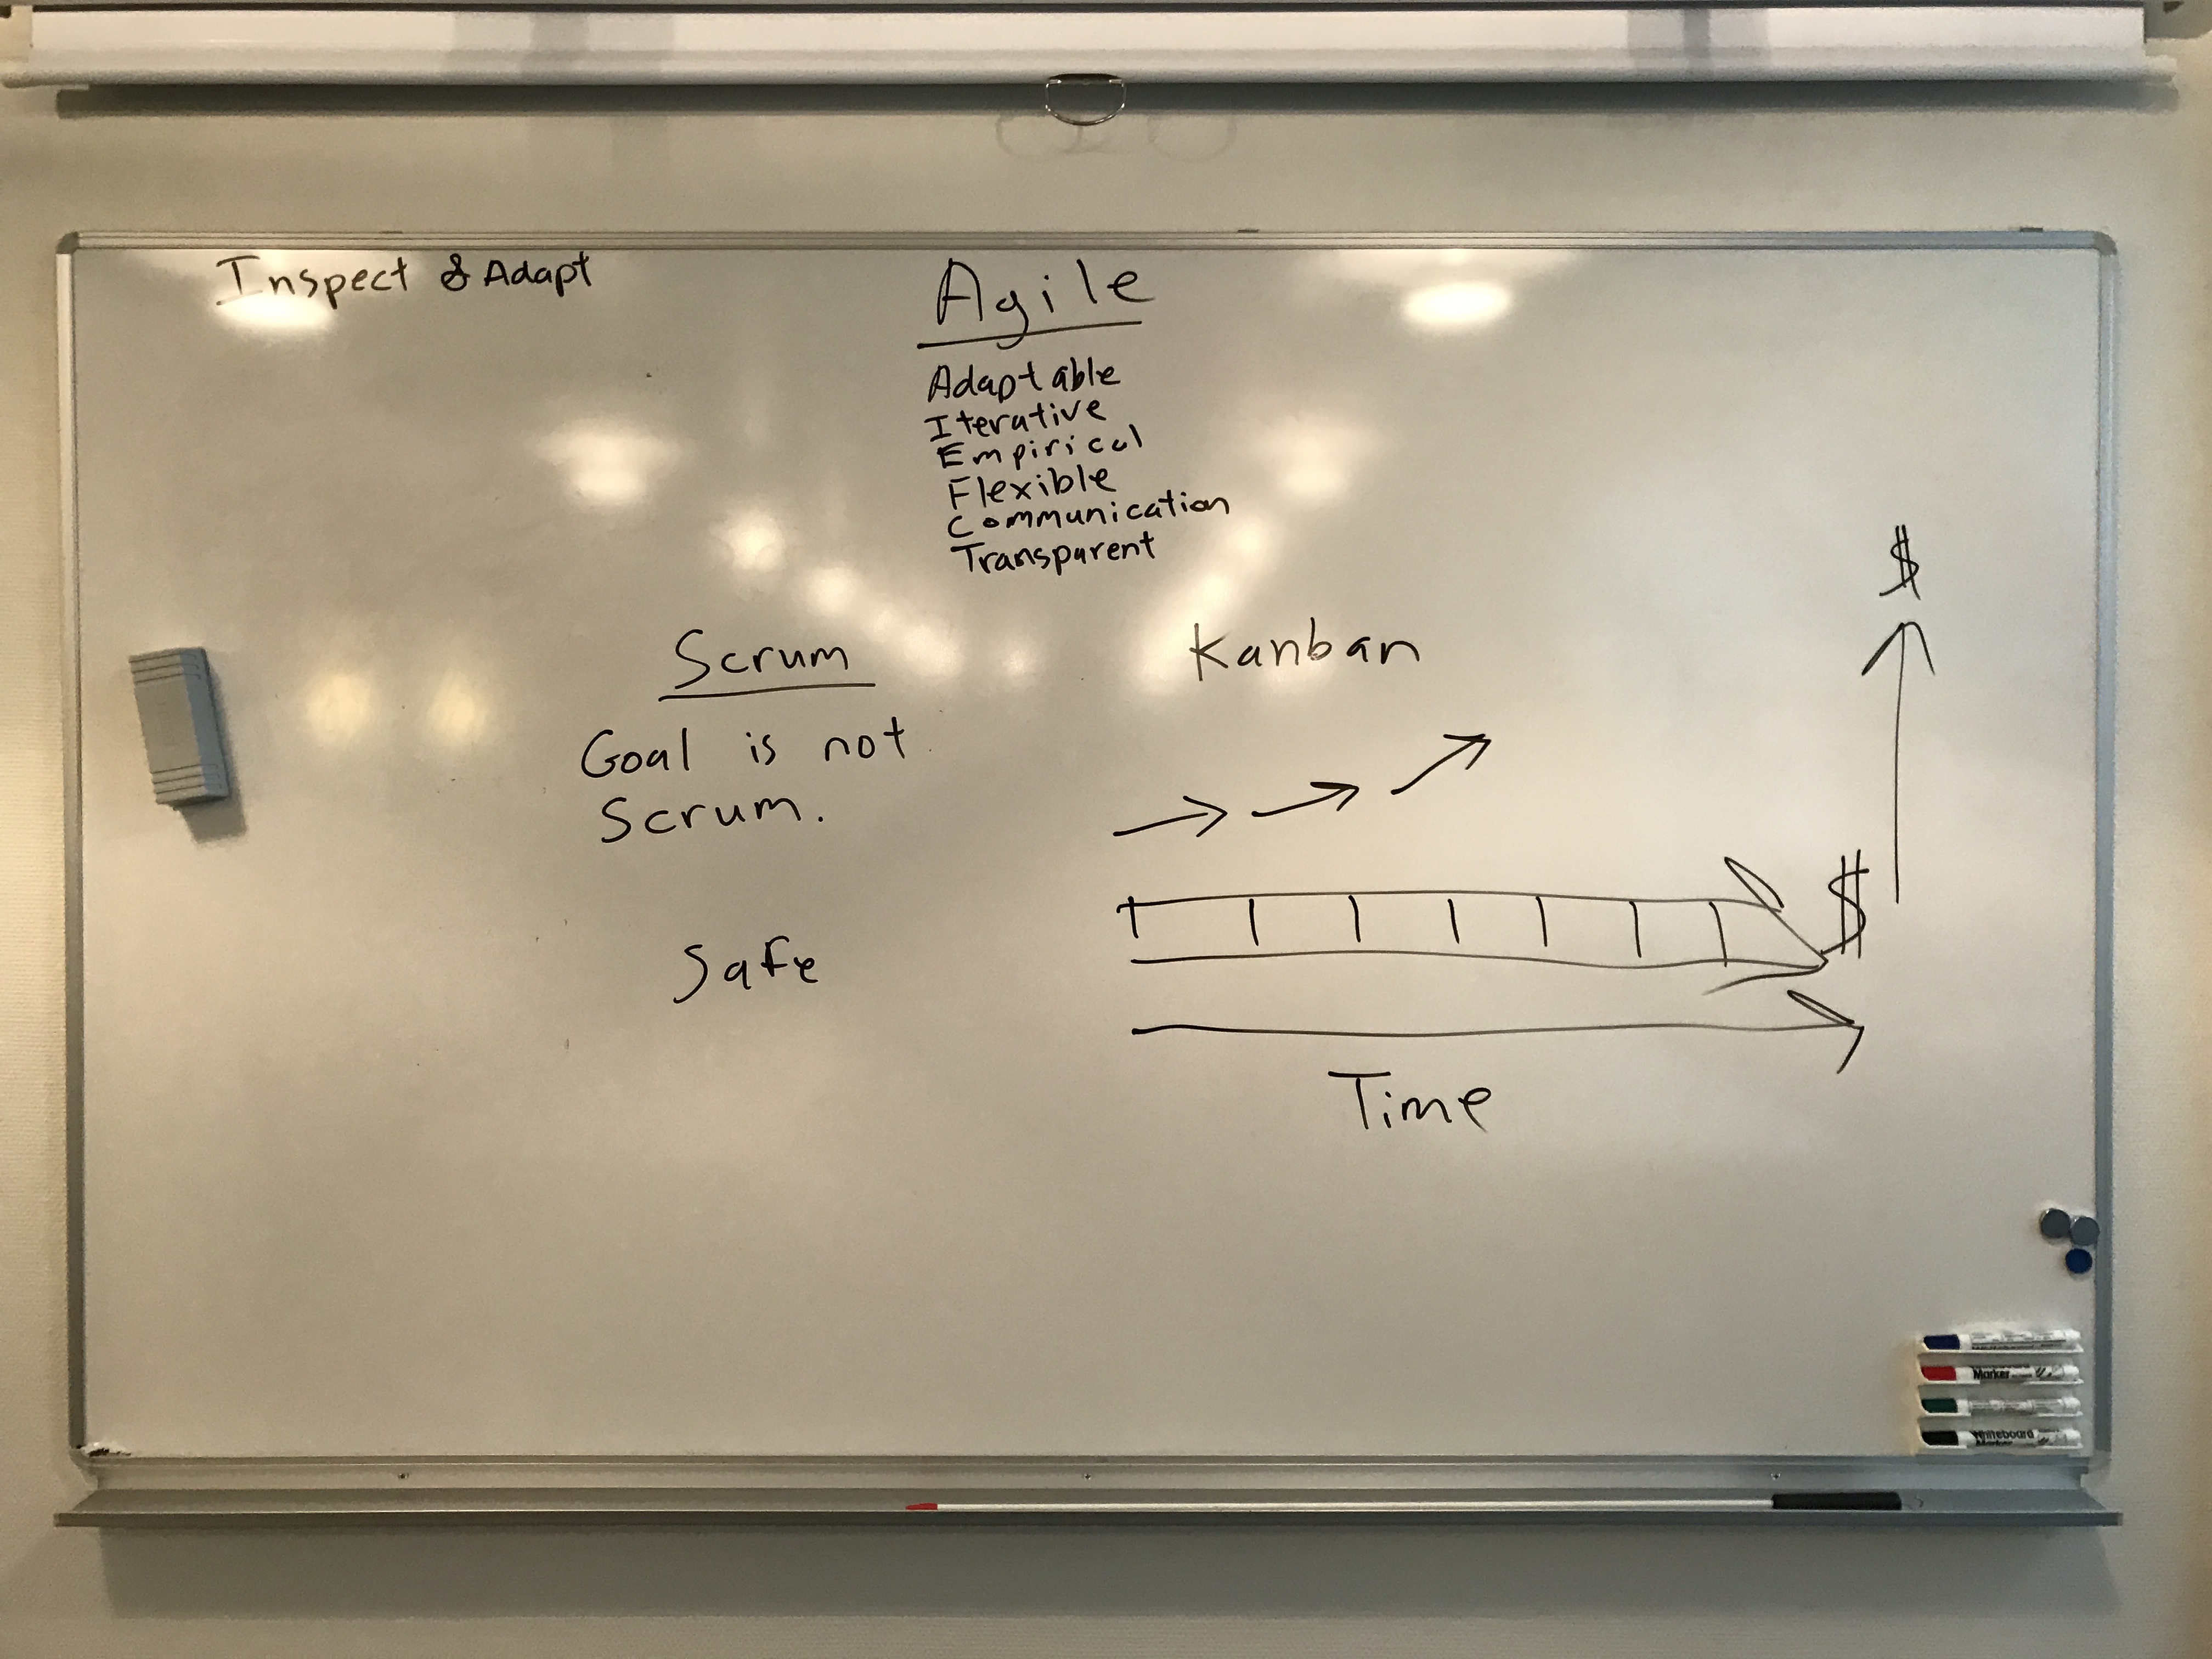 Inspect & Adapt
Agile
Adaptable
Iterative
Empirical
Flexible
Communication
Transparent
$
Scrum
Kanban
Goal is not
Scrum.
$
Safe
Time
Marker
Whiteboard
Marker